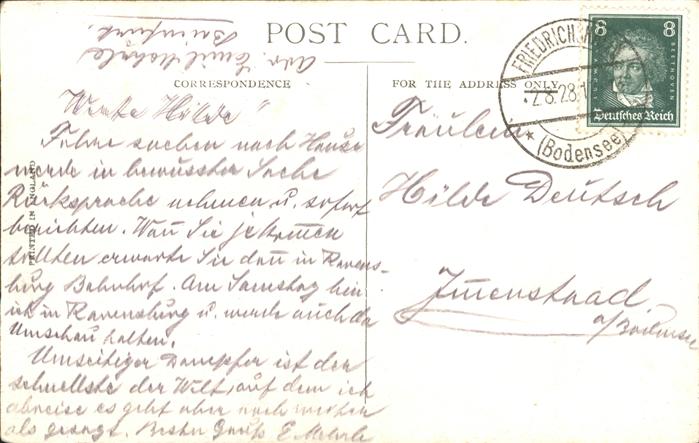 POST CARD.
Adr. Emil Meherle
CORRESPONDENCE
FOR THE ADDRESS ONLY
Werte Hilde"
Fahre soeben nach Hause
werde in bewusster Sache
Rücksprache nehmen u. sofort
berichten. Wan Sie je kommen
sollten erwarte Sie dan in Ravens-
burg Bahnhof. Am Samstag bin
ich in Ravensburg u. werde auch da
Umschau halten.
Umseitiger Dampfer ist der
schnellste der Welt, auf dem ich
abreise es geht aber noch
als gesagt. Bester Gruß E. Meherle
PRINTED IN ENGLAND
Fräulein
Hilde Deutsch
Imenstaad
a/Bodensee
FRIEDRICH
2.8.28.1
(Bodensee)
8 8
LUDWIG
BEETHOVEN
Deutsches Reich